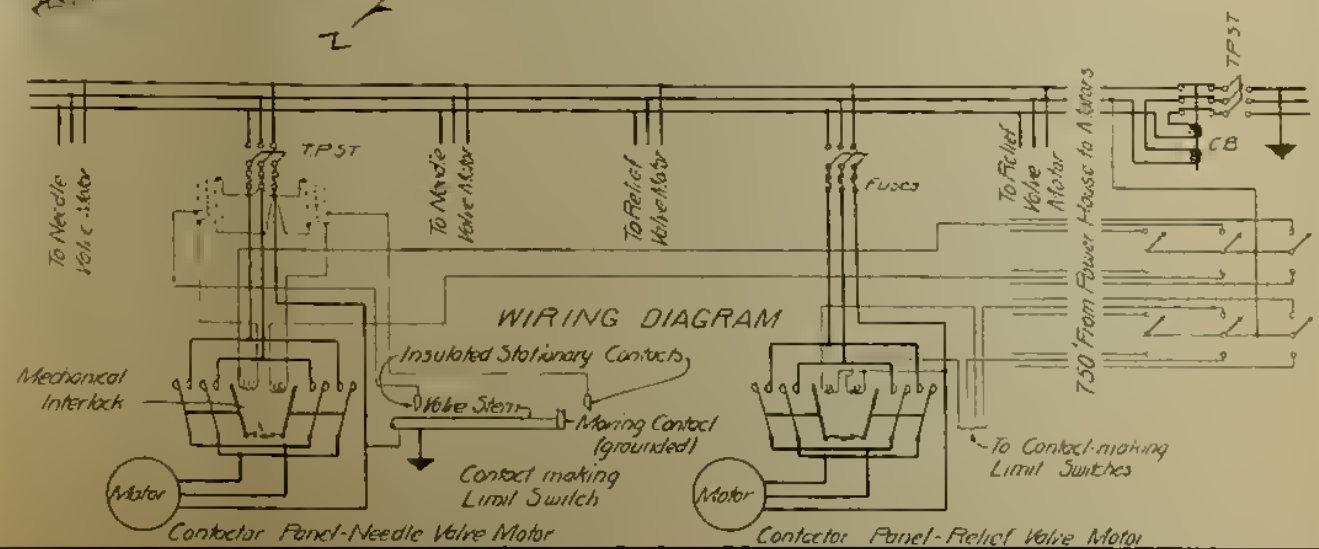 N
TPST
T.P.ST
CB
Fuses
To Needle
Valve Motor
To Needle
Valve Motor
To Relief
Valve Motor
To Relief
Valve
Motor
750' From Power House to Motors
WIRING DIAGRAM
Insulated Stationary Contacts
Mechanical
Interlock
Valve Stem
Moving Contact
(grounded)
Contact making
Limit Switch
To Contact-making
Limit Switches
Motor
Motor
Contactor Panel-Needle Valve Motor
Contactor Panel-Relief Valve Motor